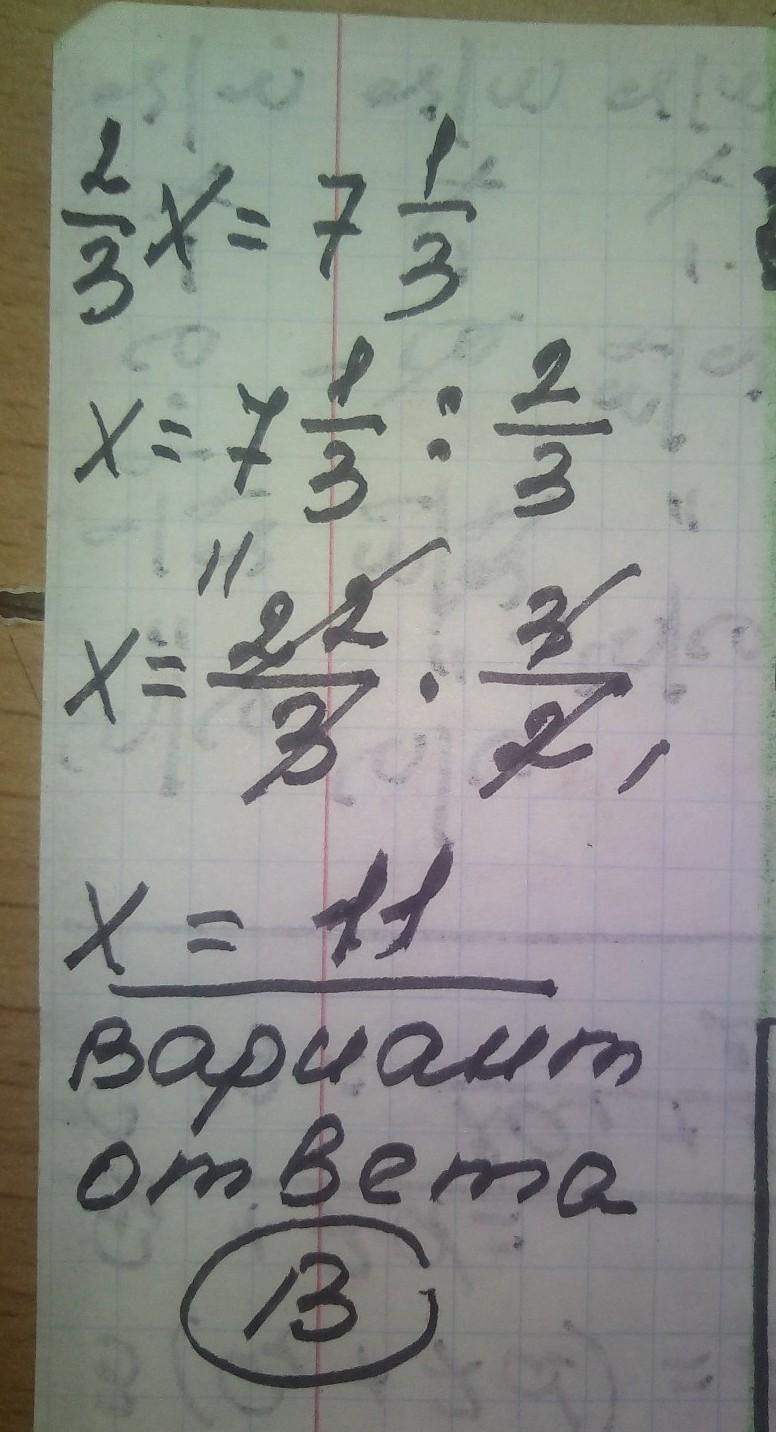 2/3 x = 7 1/3
x = 7 1/3 : 2/3
11
x = 22/3 · 3/2,
x = 11
вариант
ответа
В